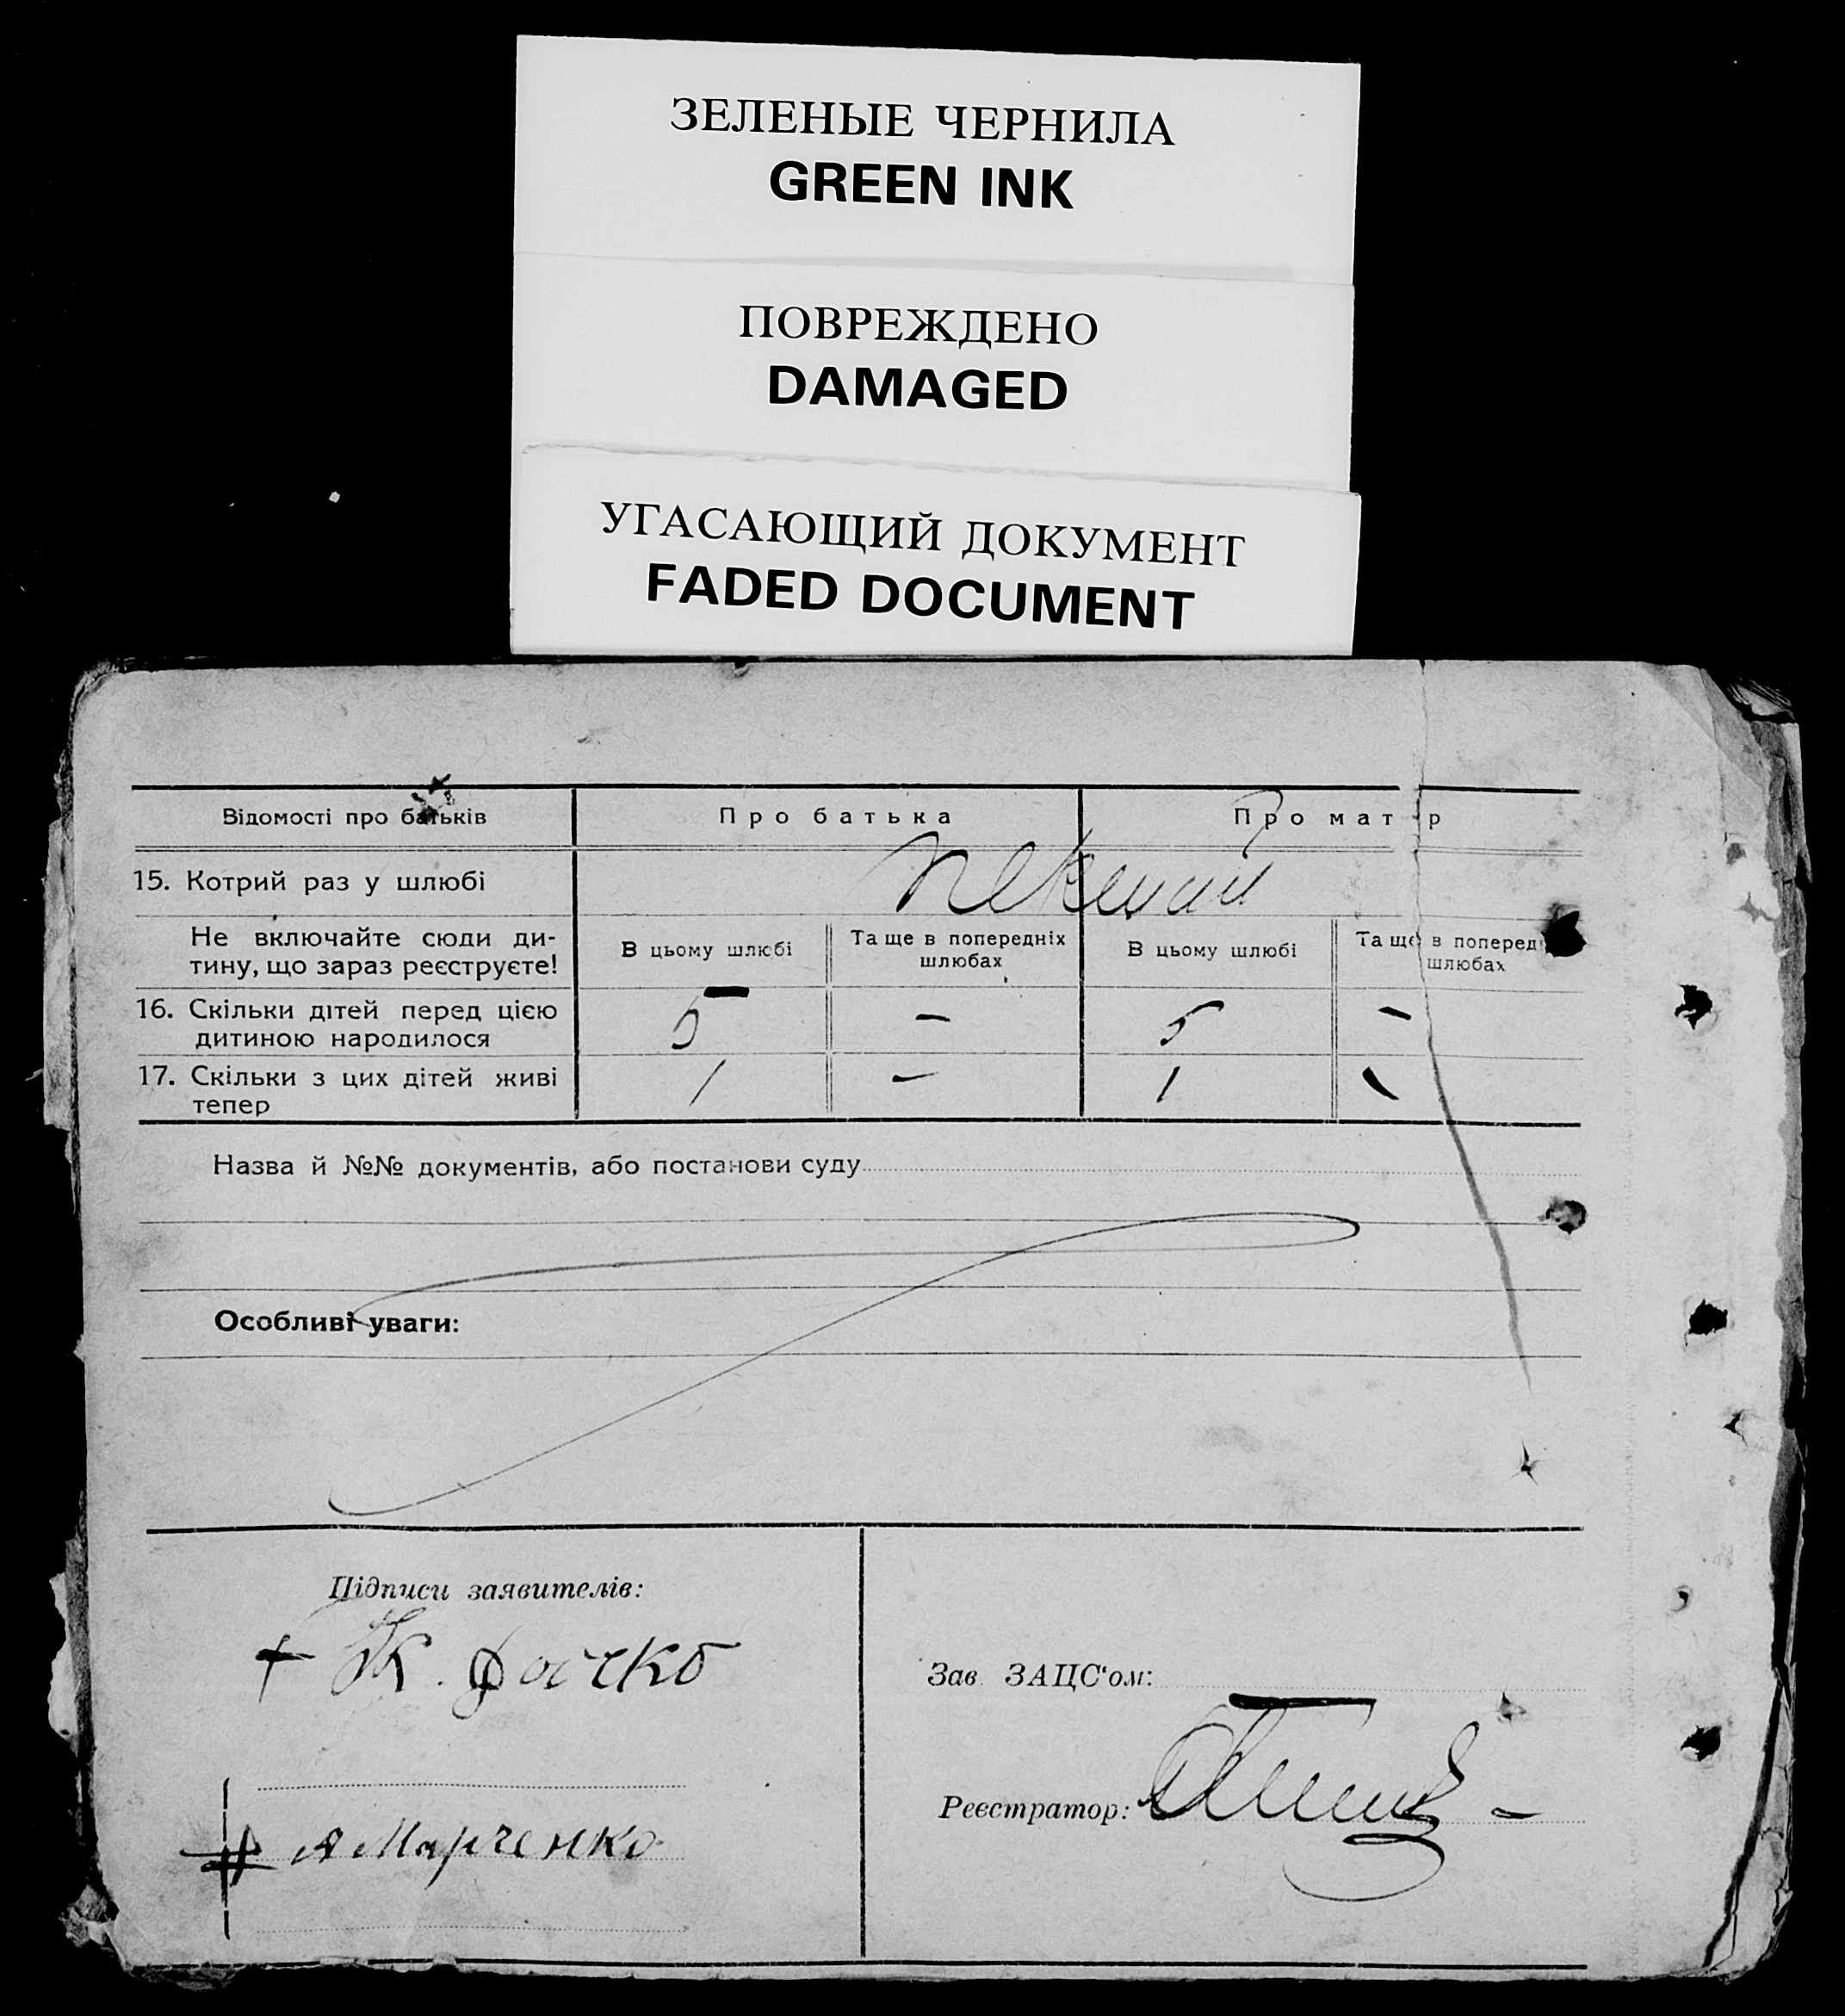 ЗЕЛЕНЫЕ ЧЕРНИЛА
GREEN INK
ПОВРЕЖДЕНО
DAMAGED
УГАСАЮЩИЙ ДОКУМЕНТ
FADED DOCUMENT
Відомості про батьків Про батька Про матір
15. Котрий раз у шлюбі
Не включайте сюди ди-
тину, що зараз реєструєте!
В цьому шлюбі
Та ще в попередніх
шлюбах
В цьому шлюбі
Та ще в попередн
шлюбах
16. Скільки дітей перед цією
дитиною народилося
5 – 5 –
17. Скільки з цих дітей живі
тепер
1 – 1 –
Назва й №№ документів, або постанови суду
Особливі уваги:
Підписи заявителів:
К.
Зав. ЗАЦС'ом:
Реєстратор:
Марченко